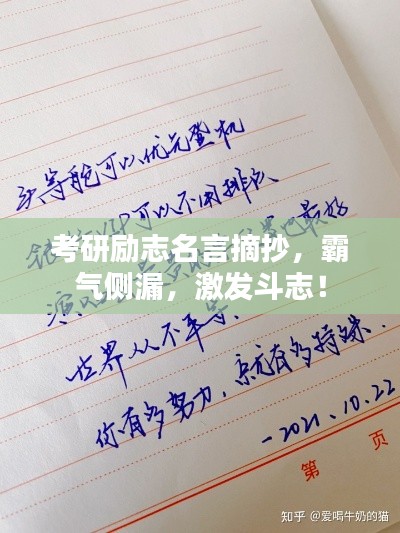 头等舱可以优先登机
银行VIP可以不用排队
演唱 最好
考研励志名言摘抄，霸
气侧漏，激发斗志！
世界从不平等.
你有多努力,就有多特殊.
-2021.10.22
第 页
知乎 @爱喝牛奶的猫